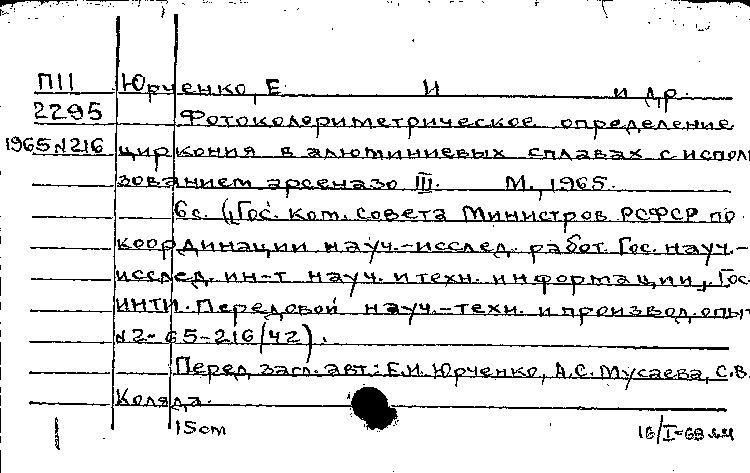 П11 Юрченко, Е. И и др.
2295 Фотоколориметрическое определение
1965 N216 циркония в алюминиевых сплавах с исполь
зованием арсеназо III. М., 1965.
6 с. (Гос. ком. Совета Министров РСФСР по
координации науч.-исслед. работ. Гос. науч.-
исслед. ин-т науч. и техн. информации, Гос
ИНТИ. Передовой науч.-техн. и производ. опыт
N2-65-216/42).
Перед загл. авт.: Е.И. Юрченко, А.С. Мусаева, С.В.
Коляда.
15 cm